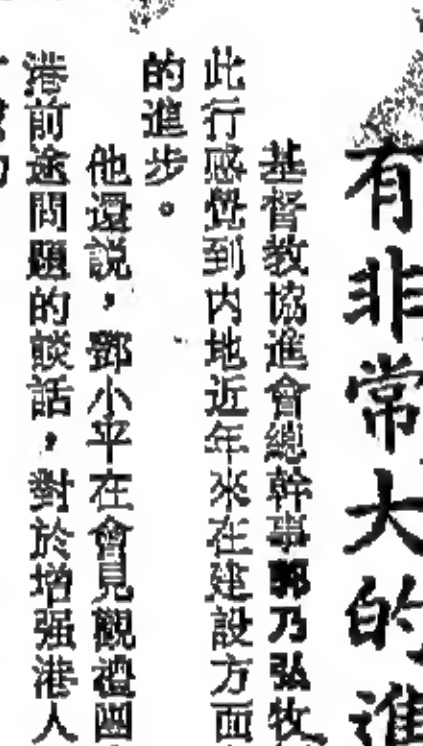 有非常大的進
基督教協進會總幹事郭乃弘牧
此行感覺到内地近年來在建設方面
的進步。
他還説，鄧小平在會見觀禮團
港前途問題的談話，對於增强港人